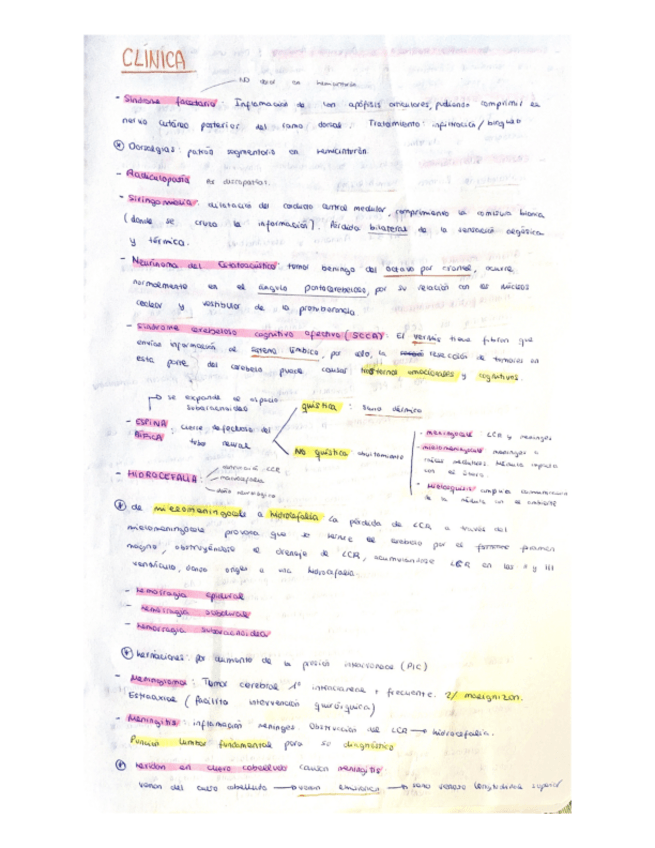 CLÍNICA
- Síndrome facetario: Inflamación de las apófisis articulares, pudiendo comprimir el
nervio cutáneo posterior del ramo dorsal. Tratamiento: infiltración / bloqueo
* Dorsalgias: patrón segmentario en hemicinturón.
- Radiculopatía es discopatías.
- Siringomielia: dilatación del conducto central medular, comprimiendo la comisura blanca
(donde se cruza la información). Pérdida bilateral de la sensación algésica
y térmica.
- Neurinoma del Estatoacústico: tumor benigno del octavo par craneal, ocurre
normalmente en el ángulo pontocerebeloso, por su relación con los núcleos
coclear y vestibular de la protuberancia
- Síndrome cerebeloso cognitivo afectivo (SCCA): El vermis tiene fibras que
envían información al sistema límbico, por ello, la resección de tumores en
esta parte del cerebelo puede causar trastornos emocionales y cognitivos.
se expande el espacio
subaracnoideo
quística: seno dérmico
- ESPINA BÍFIDA: cierre defectuoso del
tubo neural
No quística
- meningocele: LCR y meninges
- mielomeningocele meninges
- HIDROCEFALIA:
* de mielomeningocele a hidrocefalia la pérdida de LCR a través del
mielomeningocele provoca que se hernie el cerebelo por el foramen
magno, obstruyéndose el drenaje de LCR, acumulándose LCR en los
ventrículo, dando origen a una hidrocefalia.
- hemorragia epidural
- hemorragia subdural
- hemorragia subaracnoidea
* herniaciones: por aumento de la presión (PIC)
- Meningioma: Tumor cerebral 1º intracraneal + frecuente.
Extraaxial (facilita intervención quirúrgica)
- Meningitis: inflamación meninges. Obstrucción del LCR → hidrocefalia.
Punción lumbar fundamental para su diagnóstico
* heridas en cuero cabelludo causan meningitis
venas del cuero cabelludo → venas emisarias → seno venoso longitudinal superior